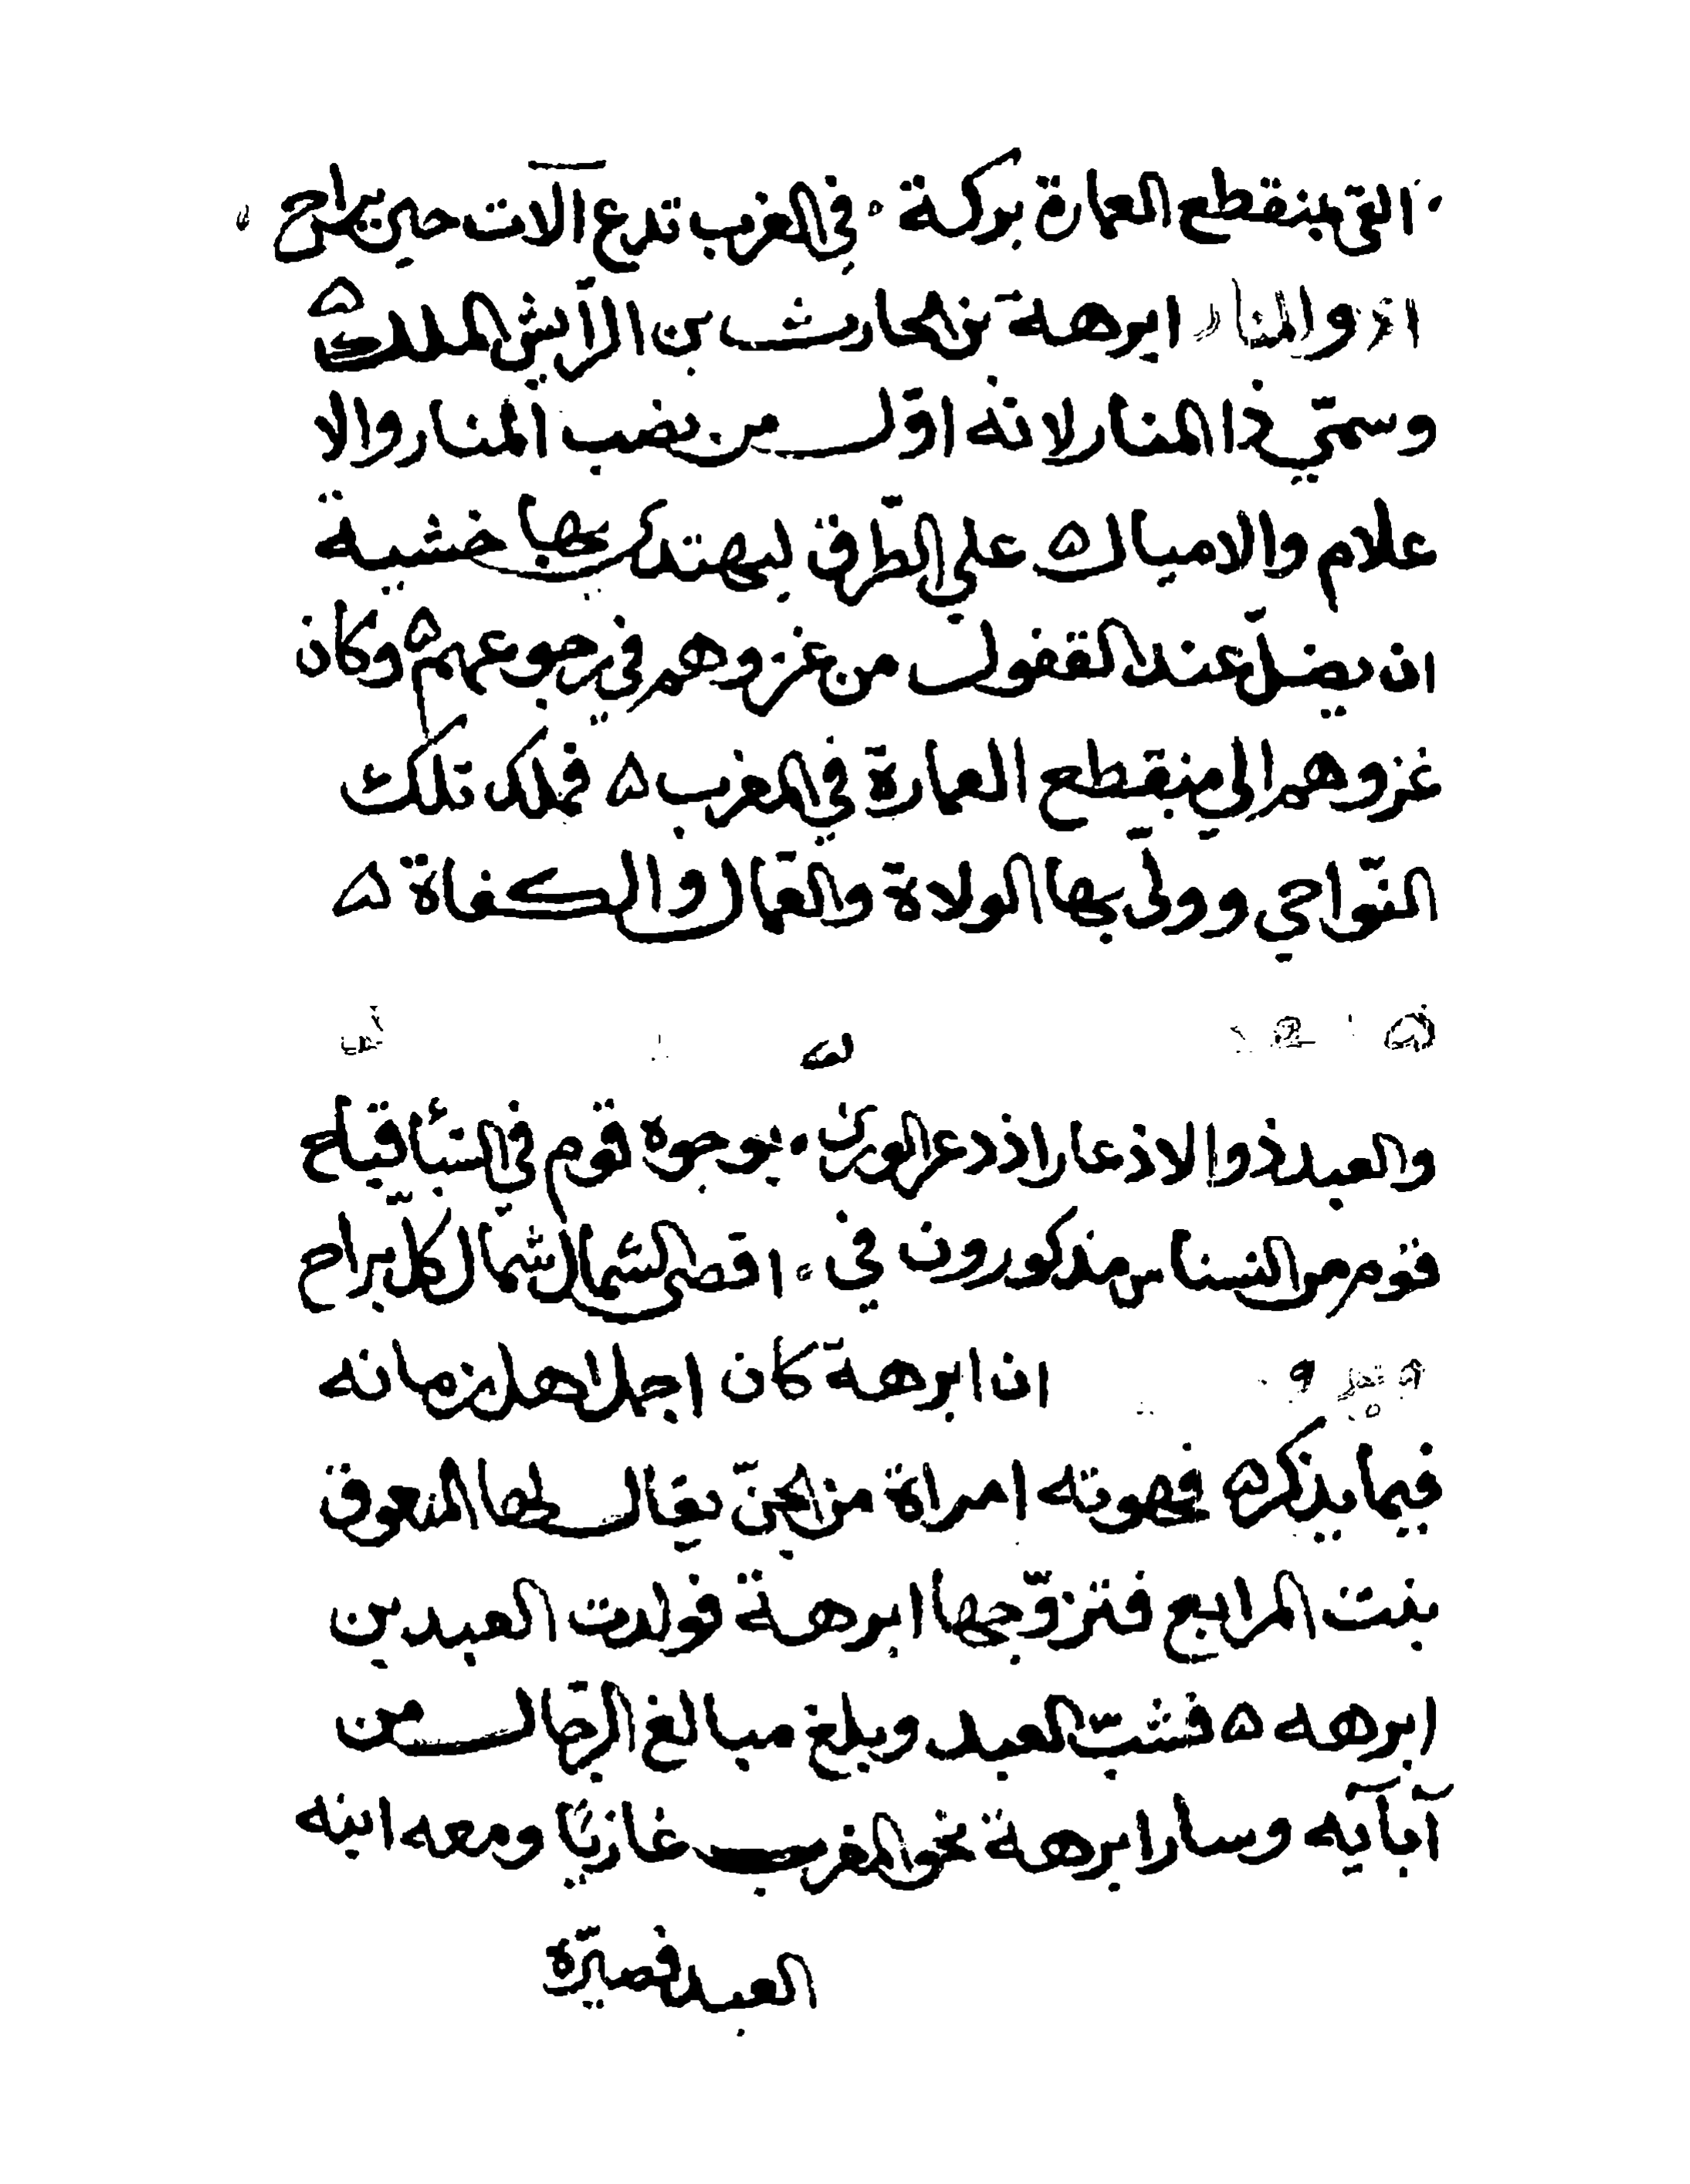 القى بمنقطع العمارة بركة ۰ في الغرب تدع آلات حين براح
ذو المنار ابرهة بن الحارث بن الرآيش الملك ۵
وسمّي ذا المنار لانه اوّل من نصب المنار والا
علام والاميال ۵ على الطّرق ليهتدى بها خشية
ان يضلّ عند القفول من غزوهم في رجوعهم ۵ وكان
غزوهم الى منقطع العمارة في المغرب ۵ فملك تلك
النّواحي وولّى بها الولاة والعمّال والكفاة ۵
والعبد ذوالاذعار اذ ذعر الورى ۰ بوجوه قوم في السّبا قباح
قوم من النسناس مذكورون في ۰ اقصى الشمال شمال كلّ براح
ان ابرهة كان اجمل اهل زمانه
فيما يذكر ۵ فهوته امراة من الجنّ يقال لها العيوف
بنت الرابع فتزوّجها ابرهة فولدت العبد بن
ابرهه ۵ فشبّ العبد وبلغ مبالغ الرّجال من
آبآيه وسار ابرهة نحو المغرب غازيًا ومعه ابنه
العبد فصيّره